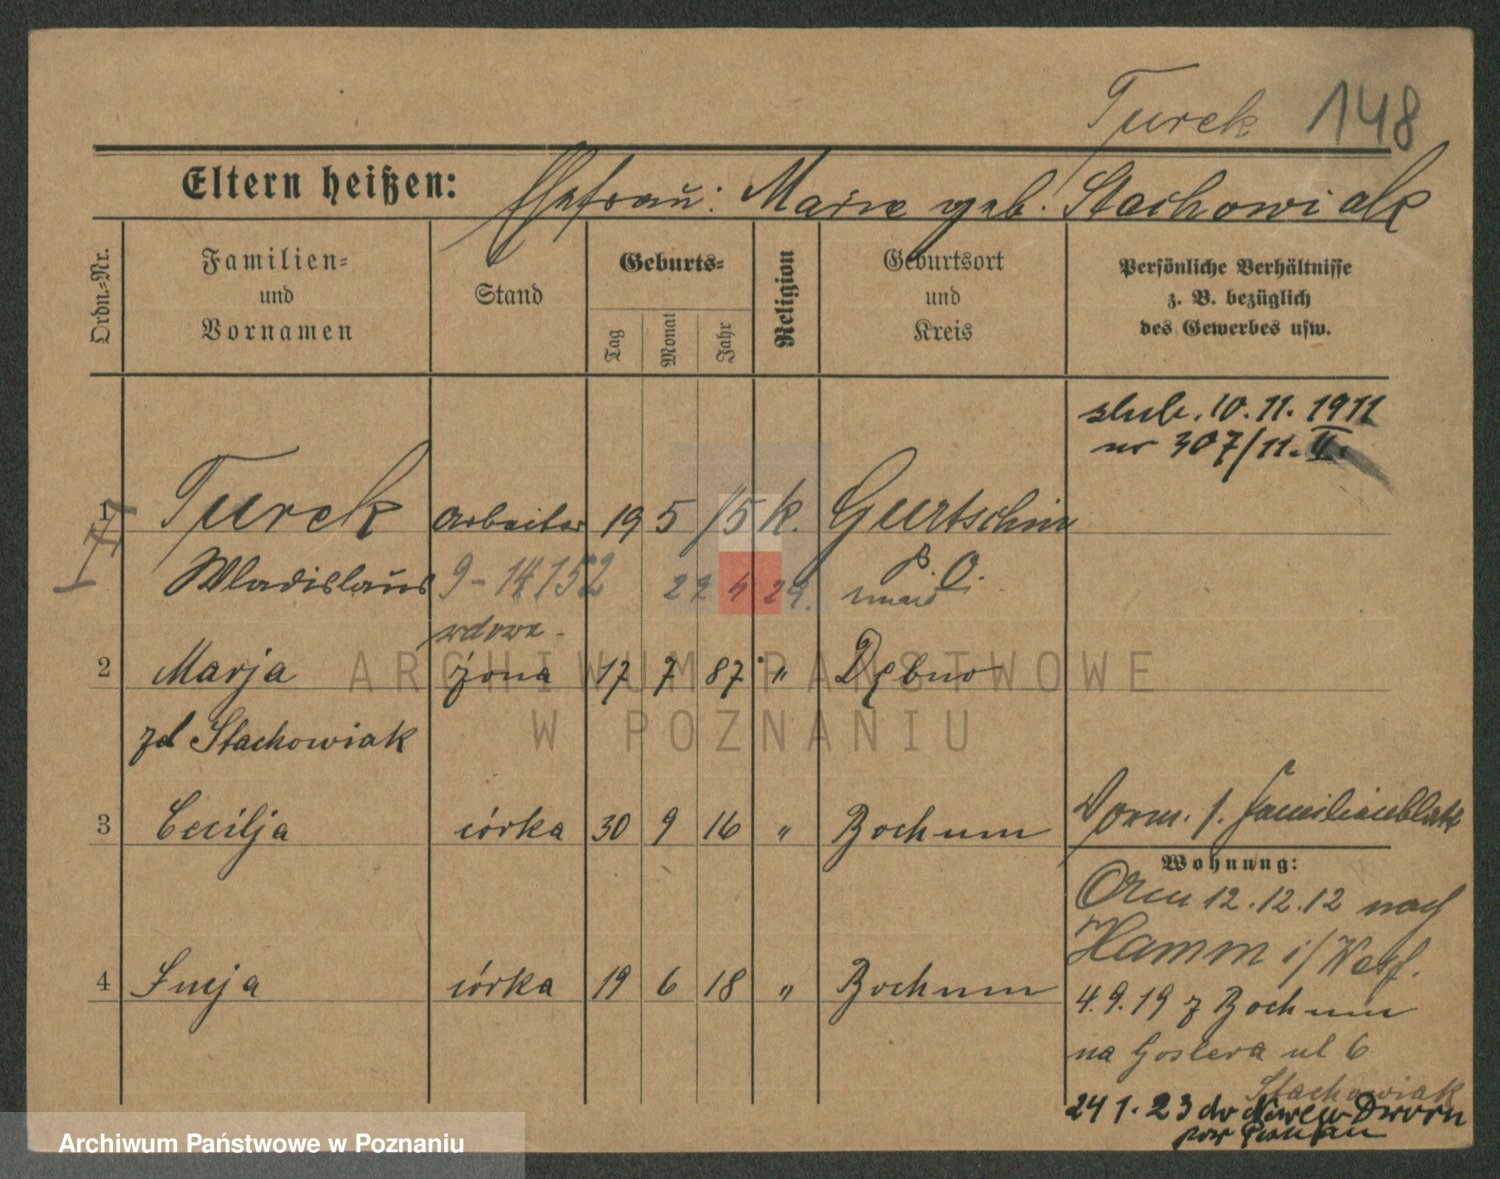 Turek 148
Eltern heißen: Ehefrau: Marie geb. Stachowiak
Ordn.-Nr.
Familien-
und
Vornamen
Stand
Geburts-
Tag
Monat
Jahr
Religion
Geburtsort
und
Kreis
Persönliche Verhältnisse
z. B. bezüglich
des Gewerbes usw.
slub. 10.11. 1911
nr 307/11. II.
1 Turek Arbeiter 19 5 /5 k. Gurtschin
Wladislaus 9-14152 22 4 29. P. O.
wdowa -
2 Marja żona 17 7 87 " Dębno
zd Stachowiak
3 Cecilja córka 30 9 16 " Bochum
Vorm. s. Familienblatt
Wohnung:
Am 12.12.12 nach
Hamm i/Westf.
4 Lucja córka 19 6 18 " Bochum
4.9.19 z Bochum
na Goslera ul 6
Stachowiak
24 1. 23 do Nowego Dworu
pow Poznań
ARCHIWUM PAŃSTWOWE
W POZNANIU
Archiwum Państwowe w Poznaniu